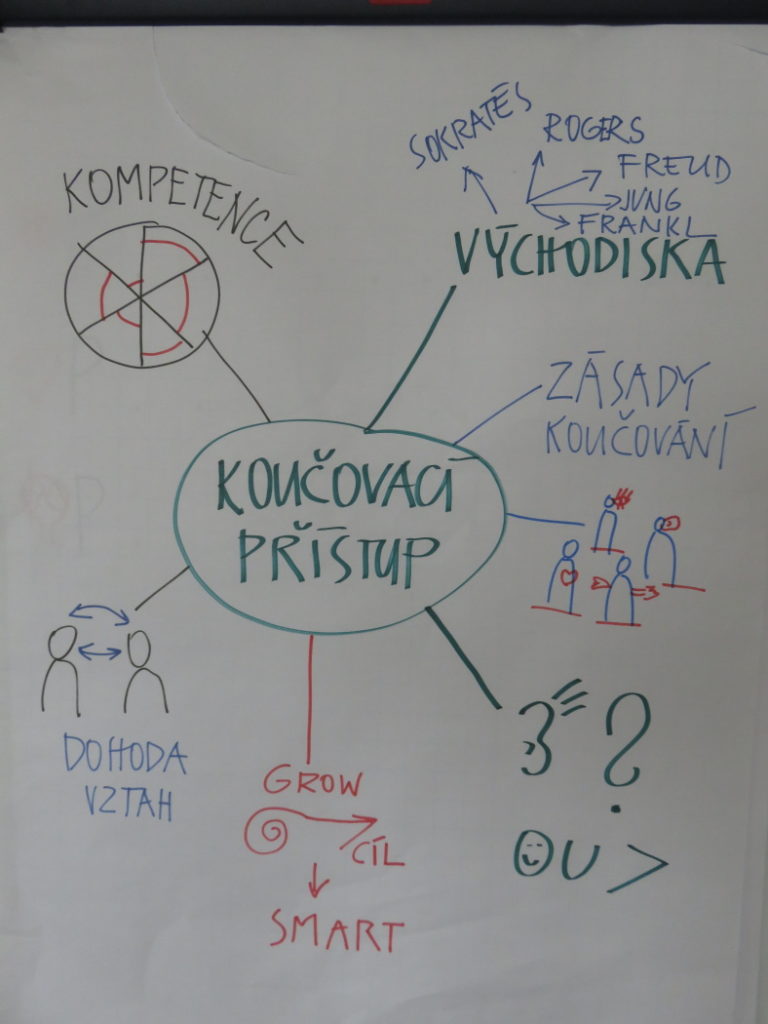 KOMPETENCE
SOKRATÉS
ROGERS
FREUD
JUNG
FRANKL
VÝCHODISKA
ZÁSADY
KOUČOVÁNÍ
KOUČOVACÍ
PŘÍSTUP
DOHODA
VZTAH
GROW
CÍL
SMART
?
U >